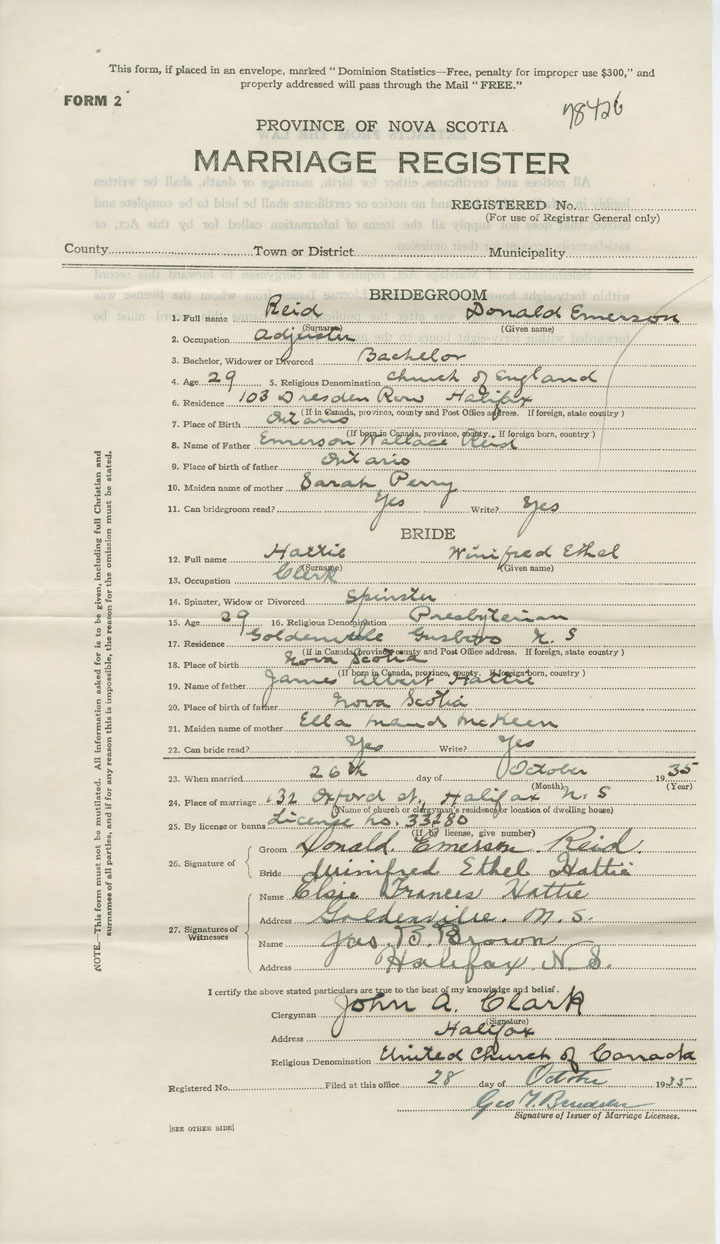 This form, if placed in an envelope, marked "Dominion Statistics—Free, penalty for improper use $300," and
properly addressed will pass through the Mail "FREE."
FORM 2
78426
PROVINCE OF NOVA SCOTIA
MARRIAGE REGISTER
REGISTERED No.
(For use of Registrar General only)
County Town or District Municipality
BRIDEGROOM
1. Full name Reid Donald Emerson
(Surname) (Given name)
2. Occupation Adjuster
3. Bachelor, Widower or Divorced Bachelor
4. Age 29 5. Religious Denomination Church of England
6. Residence 103 Dresden Row Halifax
(If in Canada, province, county and Post Office address. If foreign, state country)
7. Place of Birth Ontario
(If born in Canada, province, county. If foreign born, country)
8. Name of Father Emerson Wallace Reid
9. Place of birth of father Ontario
10. Maiden name of mother Sarah Perry
11. Can bridegroom read? Yes Write? Yes
BRIDE
12. Full name Hattie Winifred Ethel
(Surname) (Given name)
13. Occupation Clerk
14. Spinster, Widow or Divorced Spinster
15. Age 29 16. Religious Denomination Presbyterian
17. Residence Goldenville Gusboro N. S
(If in Canada, province, county and Post Office address. If foreign, state country)
18. Place of birth Nova Scotia
(If born in Canada, province, county. If foreign born, country)
19. Name of father James Albert Hattie
20. Place of birth of father Nova Scotia
21. Maiden name of mother Ella Maud McKeen
22. Can bride read? Yes Write? Yes
23. When married 26th day of October 1935
(Month) (Year)
24. Place of marriage 132 Oxford st, Halifax N. S
(Name of church or clergyman's residence or location of dwelling house)
25. By license or banns License no. 33280
(If by license, give number)
26. Signature of
Groom Donald Emerson Reid.
Bride Winifred Ethel Hattie
27. Signatures of Witnesses
Name Elsie Frances Hattie
Address Goldenville. N. S.
Name Jas. B. Brown
Address Halifax N. S.
I certify the above stated particulars are true to the best of my knowledge and belief.
Clergyman John A. Clark
(Signature)
Address Halifax
Religious Denomination United Church of Canada
Registered No. Filed at this office 28 day of October 1935
Geo
Signature of Issuer of Marriage Licenses.
[SEE OTHER SIDE]
NOTE.—This form must not be mutilated. All information asked for is to be given, including full Christian and
surnames of all parties, and if for any reason this is impossible, the reason for the omission must be stated.